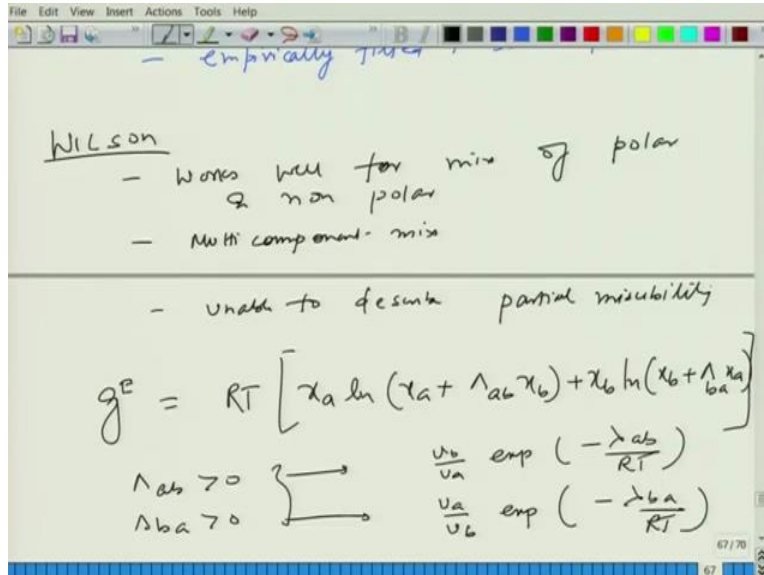 File Edit View Insert Actions Tools Help
— empirically
WILSON
— Works well for mix of polar
& non polar
— Multi component mix
— unable to describe partial miscibility
g^E = RT [x_a ln (x_a + Λ_ab x_b) + x_b ln (x_b + Λ_ba x_a)]
Λ_ab > 0 } → v_b/v_a exp (-λ_ab/RT)
Λ_ba > 0 } → v_a/v_b exp (-λ_ba/RT)
67/70
67